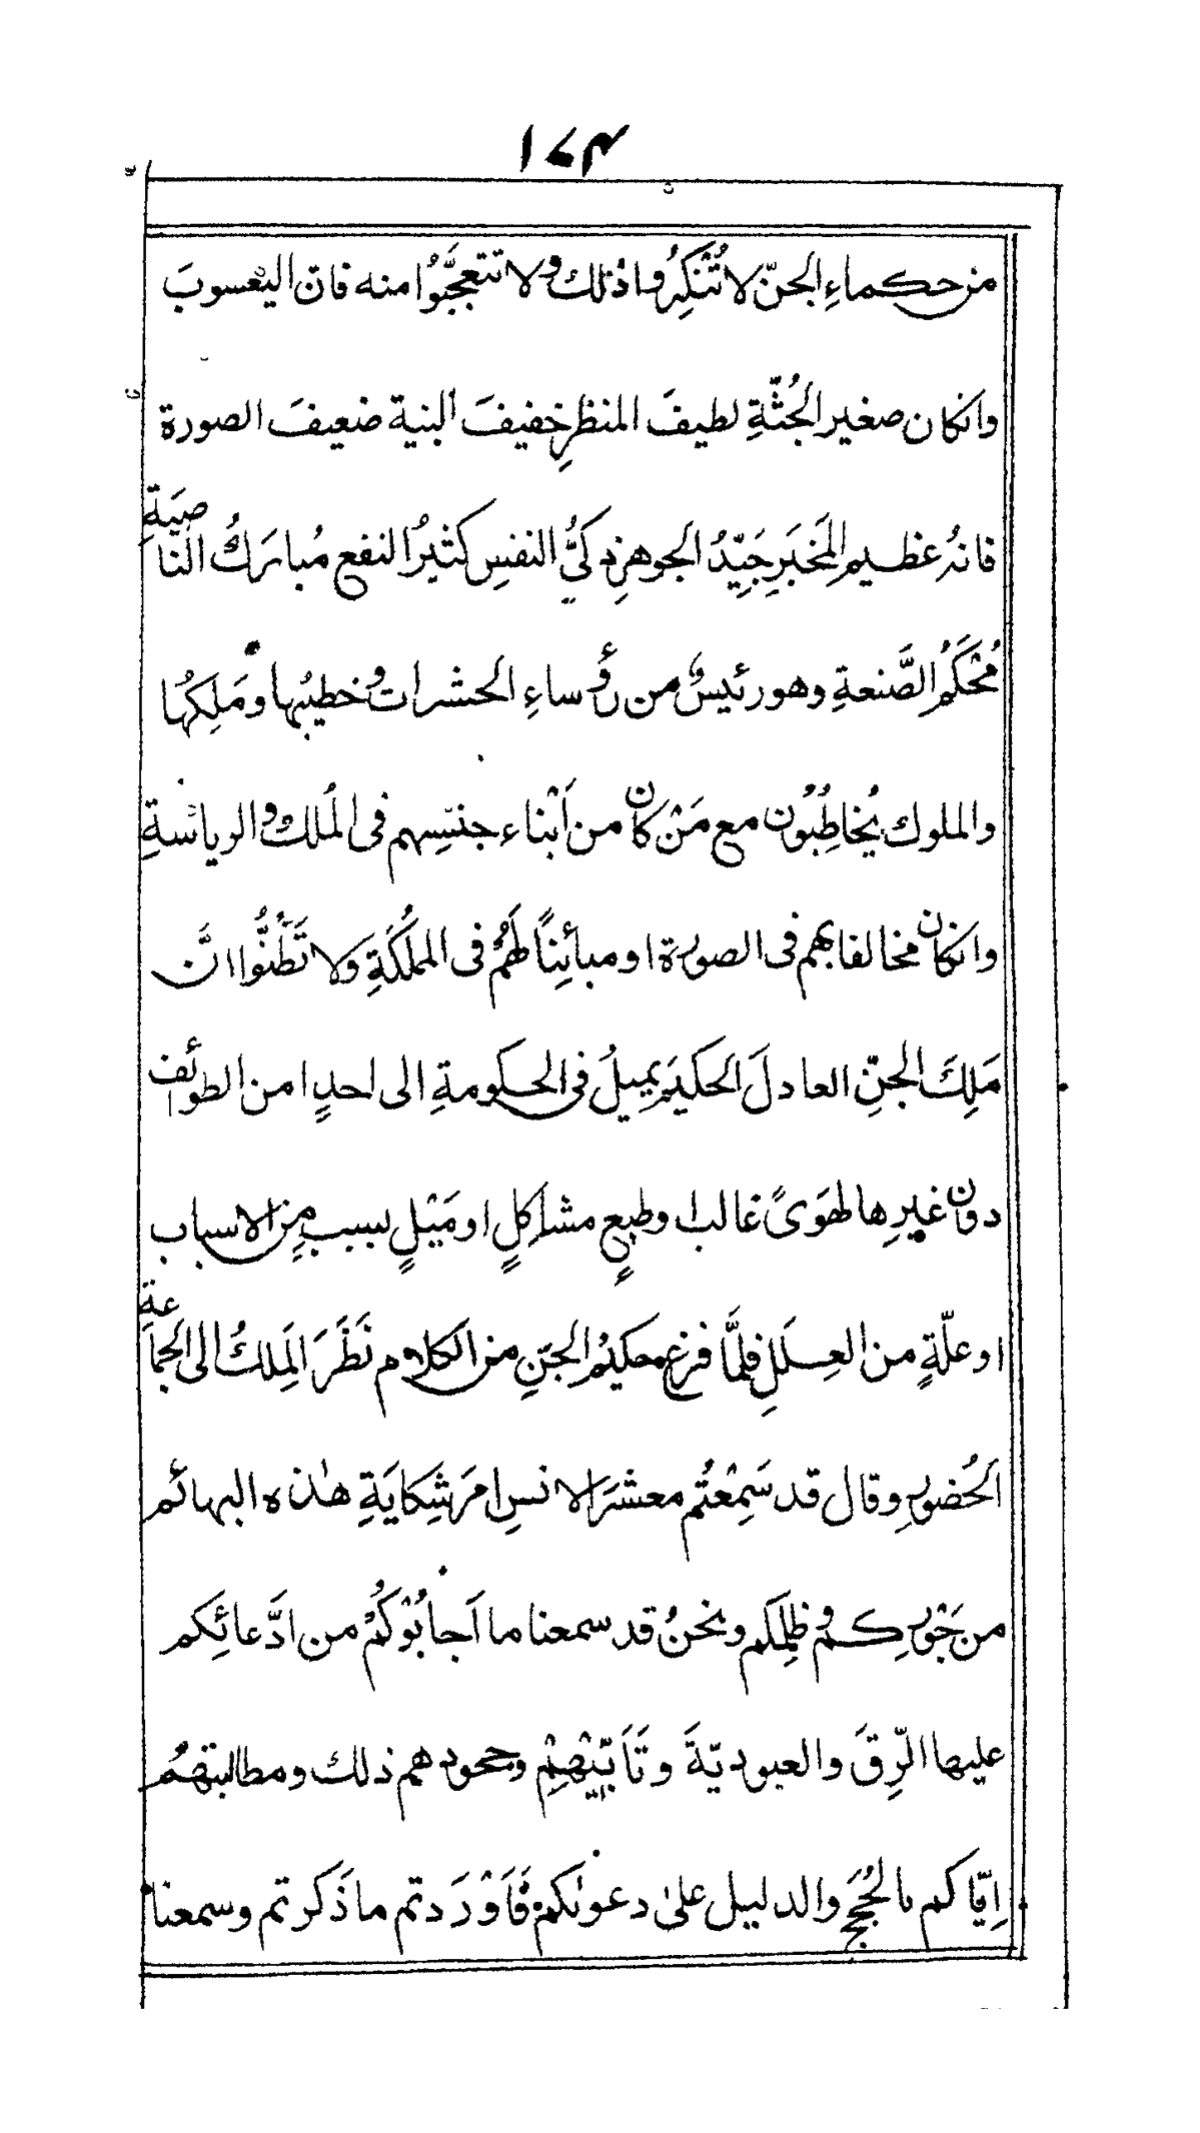 ١٦٣
من حكماءِ الجنّ لا تُنْكِرُوا ذٰلك ولا تتعجَّبُوا منه فان اليعسوبَ
وانكان صغير الجُثّةِ لطيفَ المنظرِ خفيفَ البنية ضعيفَ الصورة
فانهُ عظيم المَخبَرِ جَيِّدُ الجوهرِ ذكىُّ النفسِ كثيرُ النفع مُبارَكُ الناصيَةِ
مُحْكَمُ الصَّنعةِ وهو رئيسٌ من رُؤساءِ الحشرات وخطيبُها ومَلِكُها
والملوك يُخاطِبُون مع مَنْ كان من اَبْناء جنسِهم فى المُلك والرياسةِ
وانكان مخالفا بهم فى الصورة او مبائِناً لَهُمْ فى المملكَةِ وَلا تَظُنُّوا انَّ
مَلِكَ الجنِّ العادلَ الحكيمَ يميلُ فى الحكومةِ الى احدٍ من الطوائف
دون غيرِها لهَوىً غالب او طبعٍ مشاكِلٍ او مَيْلٍ لسبب مِن الاسباب
او علّةٍ من العِلَلِ فلمَّا فرغ حكيمُ الجنِّ من الكلام نَظَرَ المَلِكُ الى الجَماعةِ
الحُضورِ وقال قد سَمِعْتُم معشرَ الانسِ امرَ شِكايَةِ هٰذه البهائم
من جَوْرِكم وظلمِكم ونحنُ قد سمعنا ما اَجابُوْكُمْ من ادَّعائِكم
عليها الرِّقَ والعبوديّةَ وتَاَبِّيْهِمْ وجحودهم ذلك ومطالبتهُم
اِيّاكم بالحُجَجِ والدليل علىٰ دعوٰىكم فَاَوْرَدتم ما ذَكرتم وسمعنا